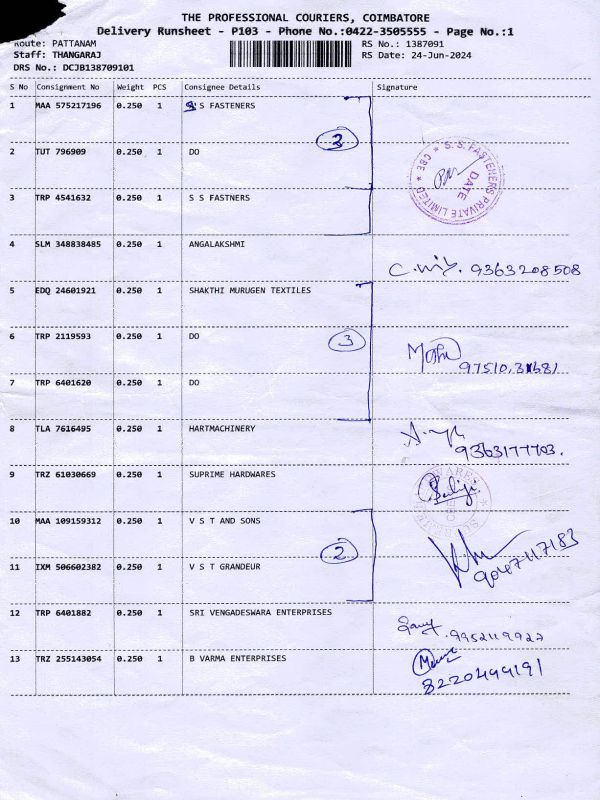 THE PROFESSIONAL COURIERS, COIMBATORE
Delivery Runsheet - P103 - Phone No.:0422-3505555 - Page No.:1
Route: PATTANAM RS No.: 1387091
Staff: THANGARAJ RS Date: 24-Jun-2024
DRS No.: DCJB138709101
S No Consignment No Weight PCS Consignee Details Signature
1 MAA 575217196 0.250 1 S S FASTENERS
2 TUT 796909 0.250 1 DO
3
S.S. FASTENERS PRIVATE LIMITED * CBE *
DATE
3 TRP 4541632 0.250 1 S S FASTNERS
4 SLM 348838485 0.250 1 ANGALAKSHMI
9363208508
5 EDQ 24601921 0.250 1 SHAKTHI MURUGEN TEXTILES
6 TRP 2119593 0.250 1 DO
3
7 TRP 6401620 0.250 1 DO
8 TLA 7616495 0.250 1 HARTMACHINERY
9363177703.
9 TRZ 61030669 0.250 1 SUPRIME HARDWARES
10 MAA 109159312 0.250 1 V S T AND SONS
2
11 IXM 506602382 0.250 1 V S T GRANDEUR
9047117183
12 TRP 6401882 0.250 1 SRI VENGADESWARA ENTERPRISES
9952119927
13 TRZ 255143054 0.250 1 B VARMA ENTERPRISES
8220499191